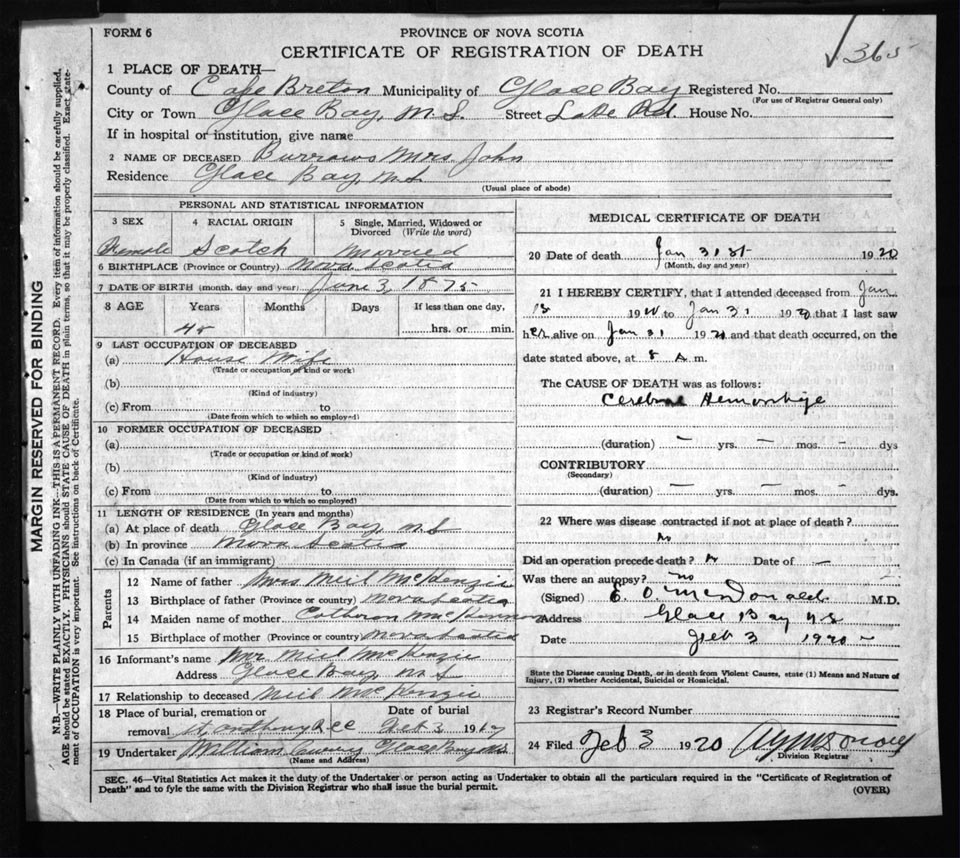 FORM 6
PROVINCE OF NOVA SCOTIA
CERTIFICATE OF REGISTRATION OF DEATH
365
1 PLACE OF DEATH—
County of Cape Breton Municipality of Glace Bay Registered No.
(For use of Registrar General only)
City or Town Glace Bay, N.S. Street Lake Rd. House No.
If in hospital or institution, give name
2 NAME OF DECEASED Burrows Mrs John
Residence Glace Bay, N.S
(Usual place of abode)
PERSONAL AND STATISTICAL INFORMATION
3 SEX
4 RACIAL ORIGIN
5 Single, Married, Widowed or
Divorced (Write the word)
Female Scotch Married
6 BIRTHPLACE (Province or Country) Nova Scotia
7 DATE OF BIRTH (month, day and year) June 3, 1875
8 AGE Years Months Days If less than one day,
45 hrs. or min.
9 LAST OCCUPATION OF DECEASED
(a) House Wife
(Trade or occupation of kind or work)
(b)
(Kind of industry)
(c) From to
(Date from which to which so employed)
10 FORMER OCCUPATION OF DECEASED
(a)
(Trade or occupation or kind of work)
(b)
(Kind of industry)
(c) From to
(Date from which to which so employed)
11 LENGTH OF RESIDENCE (In years and months)
(a) At place of death Glace Bay, N.S
(b) In province Nova Scotia
(c) In Canada (if an immigrant)
Parents
12 Name of father Mrs Neil McKenzie
13 Birthplace of father (Province or country) Nova Scotia
14 Maiden name of mother Catheron
15 Birthplace of mother (Province or country) Nova Scotia
16 Informant's name Mr Neil McKenzie
Address Glace Bay, N.S
17 Relationship to deceased Neil McKenzie
18 Place of burial, cremation or Date of burial
removal Feb 3 19
19 Undertaker William Glace Bay N.S.
(Name and Address)
MEDICAL CERTIFICATE OF DEATH
20 Date of death Jan 31st 1920
(Month, day and year)
21 I HEREBY CERTIFY, that I attended deceased from Jan
19 to Jan 31 1920 that I last saw
her alive on Jan 31 1920 and that death occurred, on the
date stated above, at 8 A.m.
The CAUSE OF DEATH was as follows:
Cerebral Hemorrhage
(duration) — yrs. — mos. — dys
CONTRIBUTORY
(Secondary)
(duration) — yrs. — mos. — dys.
22 Where was disease contracted if not at place of death?
No
Did an operation precede death? Date of —
Was there an autopsy? no
(Signed) McDonald M.D.
Address Glace Bay N.S
Date Feb 3 1920
State the Disease causing Death, or in death from Violent Causes, state (1) Means and Nature of
Injury, (2) whether Accidental, Suicidal or Homicidal.
23 Registrar's Record Number
24 Filed Feb 3 1920
Division Registrar
SEC. 46—Vital Statistics Act makes it the duty of the Undertaker or person acting as Undertaker to obtain all the particulars required in the "Certificate of Registration of
Death" and to fyle the same with the Division Registrar who shall issue the burial permit.
(OVER)
MARGIN RESERVED FOR BINDING
N.B.—WRITE PLAINLY WITH UNFADING INK—THIS IS A PERMANENT RECORD. Every item of information should be carefully supplied.
AGE should be stated EXACTLY. PHYSICIANS should STATE CAUSE OF DEATH in plain terms, so that it may be properly classified. Exact state-
ment of OCCUPATION is very important. See instructions on back of Certificate.